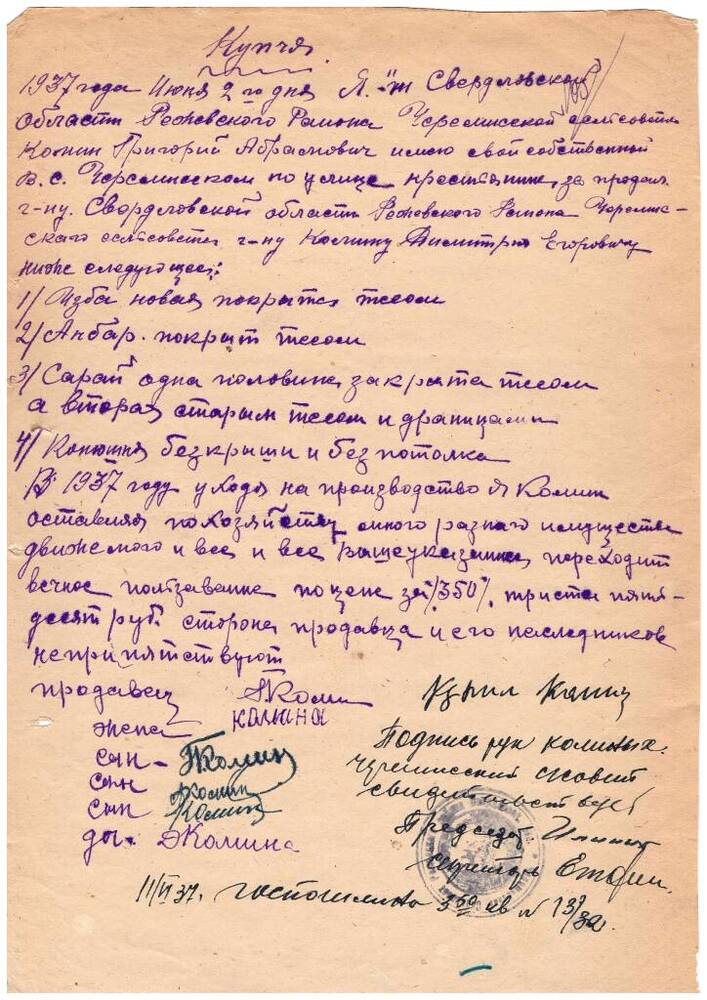 Купчя
1937 года Июня 2 го дня Я. Свердловской
области Режевского Района Черемисской сельсовета
Комин Григорий Абрамович имею свой собственный
В.С. Черемисском по улице крестьянине, за продал
г-ну. Свердловской области Режевского Района Черемис-
скаго сельсовета г-ну Комину Димитрию Егоровичу
ниже следующее:
1/ Изба новая покрыта тесом
2/ Анбар. покрыт тесом
3/ Сарай одна половина закрыта тесом
а вторая старым тесом и драницами
4/ Конюшня без крыши и без потолка
В 1937 году уходя на производство я Комин
оставляя по хозяйству много разнаго имущества
движемого и все и все вышеуказанне, переходит
вечное ползавание по цене за 350 триста пять-
десят руб. сторона продавца и его наследников
неприпятствуют
продавец ГКомин
жена Комина
сын - ГКомин
сын Комин
сын Комин
до. ЭКомина
Купил Комин
Подпись рук Коминых.
черемисский с/совет
свидетельствует
Председ.
секретарь
11/VI 37. госпошлина 3 50 кв № 13